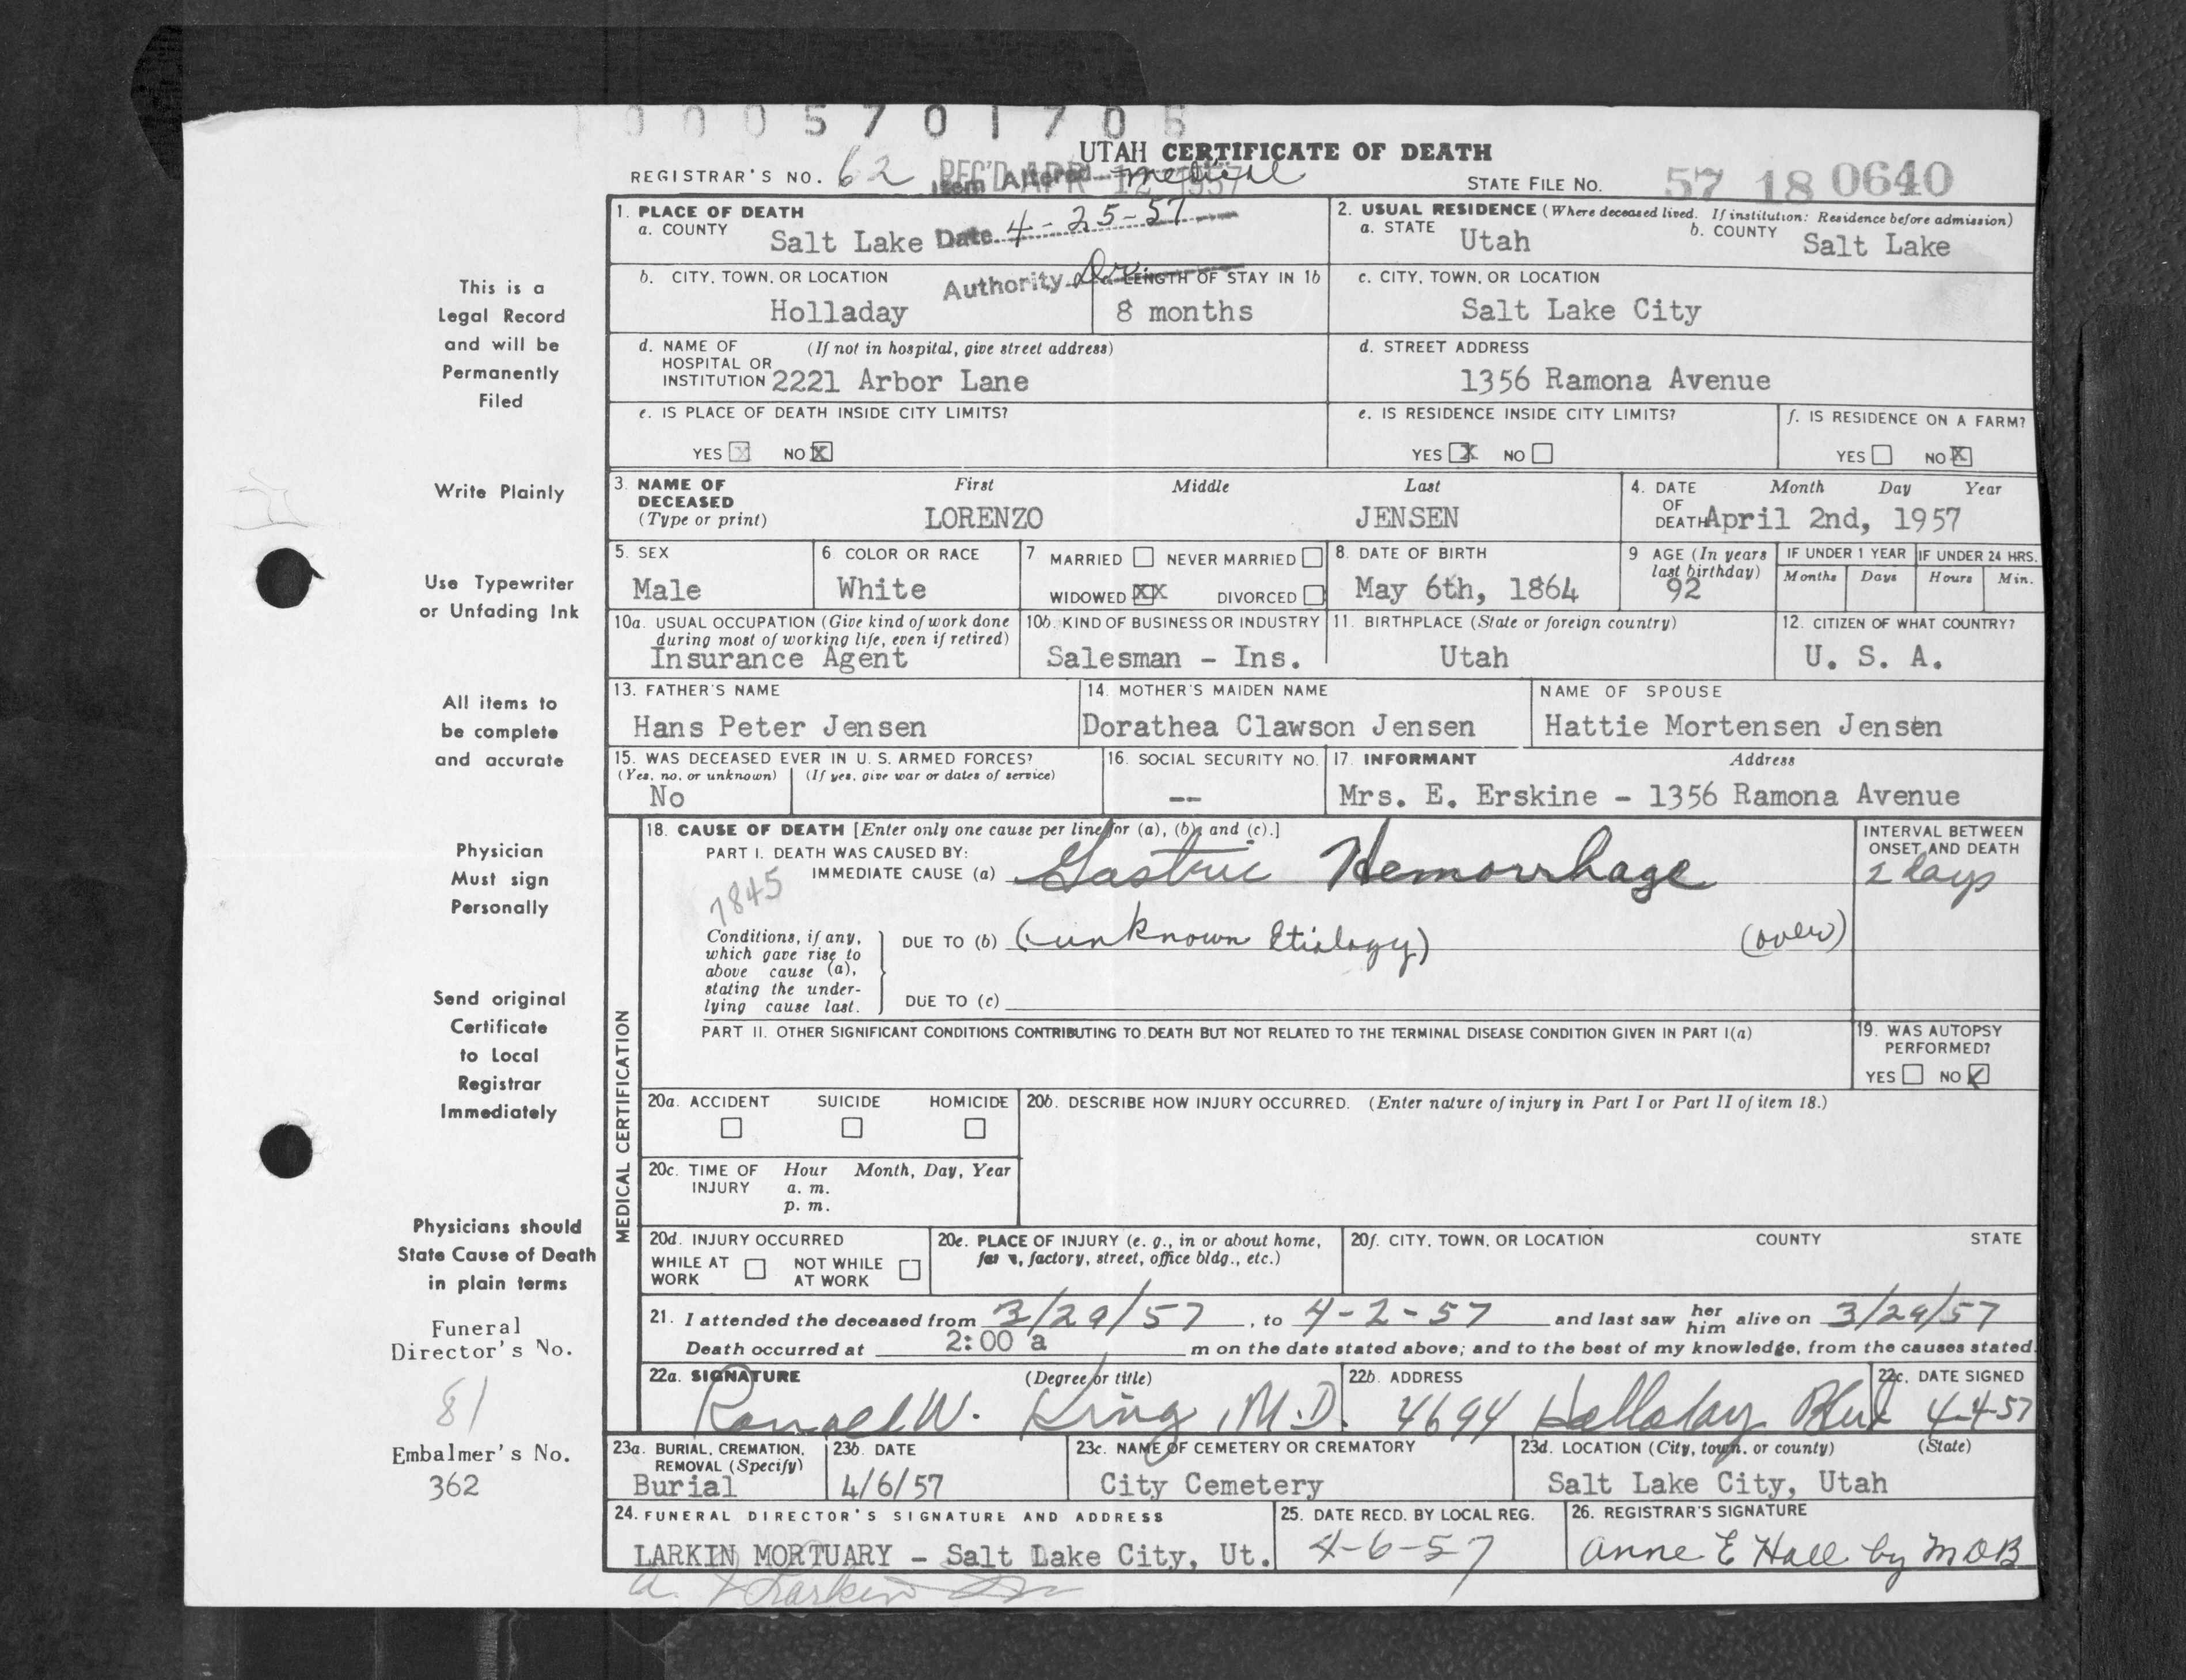 0005701706
UTAH CERTIFICATE OF DEATH
REGISTRAR'S NO. 62 REC'D APR 12 1957 STATE FILE NO. 57 18 0640
Item Altered medical
Date 4-25-57
Authority Dr.
This is a
Legal Record
and will be
Permanently
Filed
Write Plainly
Use Typewriter
or Unfading Ink
All items to
be complete
and accurate
Physician
Must sign
Personally
Send original
Certificate
to Local
Registrar
Immediately
Physicians should
State Cause of Death
in plain terms
Funeral
Director's No.
81
Embalmer's No.
362
1. PLACE OF DEATH
a. COUNTY Salt Lake
2. USUAL RESIDENCE (Where deceased lived. If institution: Residence before admission)
a. STATE Utah b. COUNTY Salt Lake
b. CITY, TOWN, OR LOCATION Holladay
LENGTH OF STAY IN 1b 8 months
c. CITY, TOWN, OR LOCATION
Salt Lake City
d. NAME OF (If not in hospital, give street address)
HOSPITAL OR
INSTITUTION 2221 Arbor Lane
d. STREET ADDRESS
1356 Ramona Avenue
e. IS PLACE OF DEATH INSIDE CITY LIMITS?
YES X NO X
e. IS RESIDENCE INSIDE CITY LIMITS?
YES X NO
f. IS RESIDENCE ON A FARM?
YES NO X
3. NAME OF DECEASED (Type or print)
First Middle Last
LORENZO JENSEN
4. DATE OF DEATH Month Day Year
April 2nd, 1957
5. SEX
Male
6. COLOR OR RACE
White
7. MARRIED NEVER MARRIED
WIDOWED XX DIVORCED
8. DATE OF BIRTH
May 6th, 1864
9 AGE (In years last birthday)
92
IF UNDER 1 YEAR IF UNDER 24 HRS.
Months Days Hours Min.
10a. USUAL OCCUPATION (Give kind of work done
during most of working life, even if retired)
Insurance Agent
10b. KIND OF BUSINESS OR INDUSTRY
Salesman - Ins.
11. BIRTHPLACE (State or foreign country)
Utah
12. CITIZEN OF WHAT COUNTRY?
U. S. A.
13. FATHER'S NAME
Hans Peter Jensen
14. MOTHER'S MAIDEN NAME
Dorathea Clawson Jensen
NAME OF SPOUSE
Hattie Mortensen Jensen
15. WAS DECEASED EVER IN U. S. ARMED FORCES?
(Yes, no, or unknown) (If yes, give war or dates of service)
No
16. SOCIAL SECURITY NO.
--
17. INFORMANT Address
Mrs. E. Erskine - 1356 Ramona Avenue
MEDICAL CERTIFICATION
18. CAUSE OF DEATH [Enter only one cause per line for (a), (b), and (c).]
PART I. DEATH WAS CAUSED BY:
IMMEDIATE CAUSE (a) Gastric Hemorrhage
INTERVAL BETWEEN
ONSET AND DEATH
2 days
7845
Conditions, if any,
which gave rise to
above cause (a),
stating the under-
lying cause last.
DUE TO (b) (unknown Etiology) (over)
DUE TO (c)
PART II. OTHER SIGNIFICANT CONDITIONS CONTRIBUTING TO DEATH BUT NOT RELATED TO THE TERMINAL DISEASE CONDITION GIVEN IN PART I(a)
19. WAS AUTOPSY
PERFORMED?
YES NO ✓
20a. ACCIDENT SUICIDE HOMICIDE
20b. DESCRIBE HOW INJURY OCCURRED. (Enter nature of injury in Part I or Part II of item 18.)
20c. TIME OF INJURY Hour Month, Day, Year
a. m.
p. m.
20d. INJURY OCCURRED
WHILE AT WORK NOT WHILE AT WORK
20e. PLACE OF INJURY (e. g., in or about home,
farm, factory, street, office bldg., etc.)
20f. CITY, TOWN, OR LOCATION COUNTY STATE
21. I attended the deceased from 3/29/57, to 4-2-57 and last saw her him alive on 3/29/57
Death occurred at 2:00 a m on the date stated above; and to the best of my knowledge, from the causes stated.
22a. SIGNATURE (Degree or title)
Ronald W. King, M.D.
22b. ADDRESS
4694 Holladay Blvd
22c. DATE SIGNED
4-4-57
23a. BURIAL, CREMATION,
REMOVAL (Specify)
Burial
23b. DATE
4/6/57
23c. NAME OF CEMETERY OR CREMATORY
City Cemetery
23d. LOCATION (City, town, or county) (State)
Salt Lake City, Utah
24. FUNERAL DIRECTOR'S SIGNATURE AND ADDRESS
LARKIN MORTUARY - Salt Lake City, Ut.
25. DATE RECD. BY LOCAL REG.
4-6-57
26. REGISTRAR'S SIGNATURE
Anne E Hall by MOB
Larkin